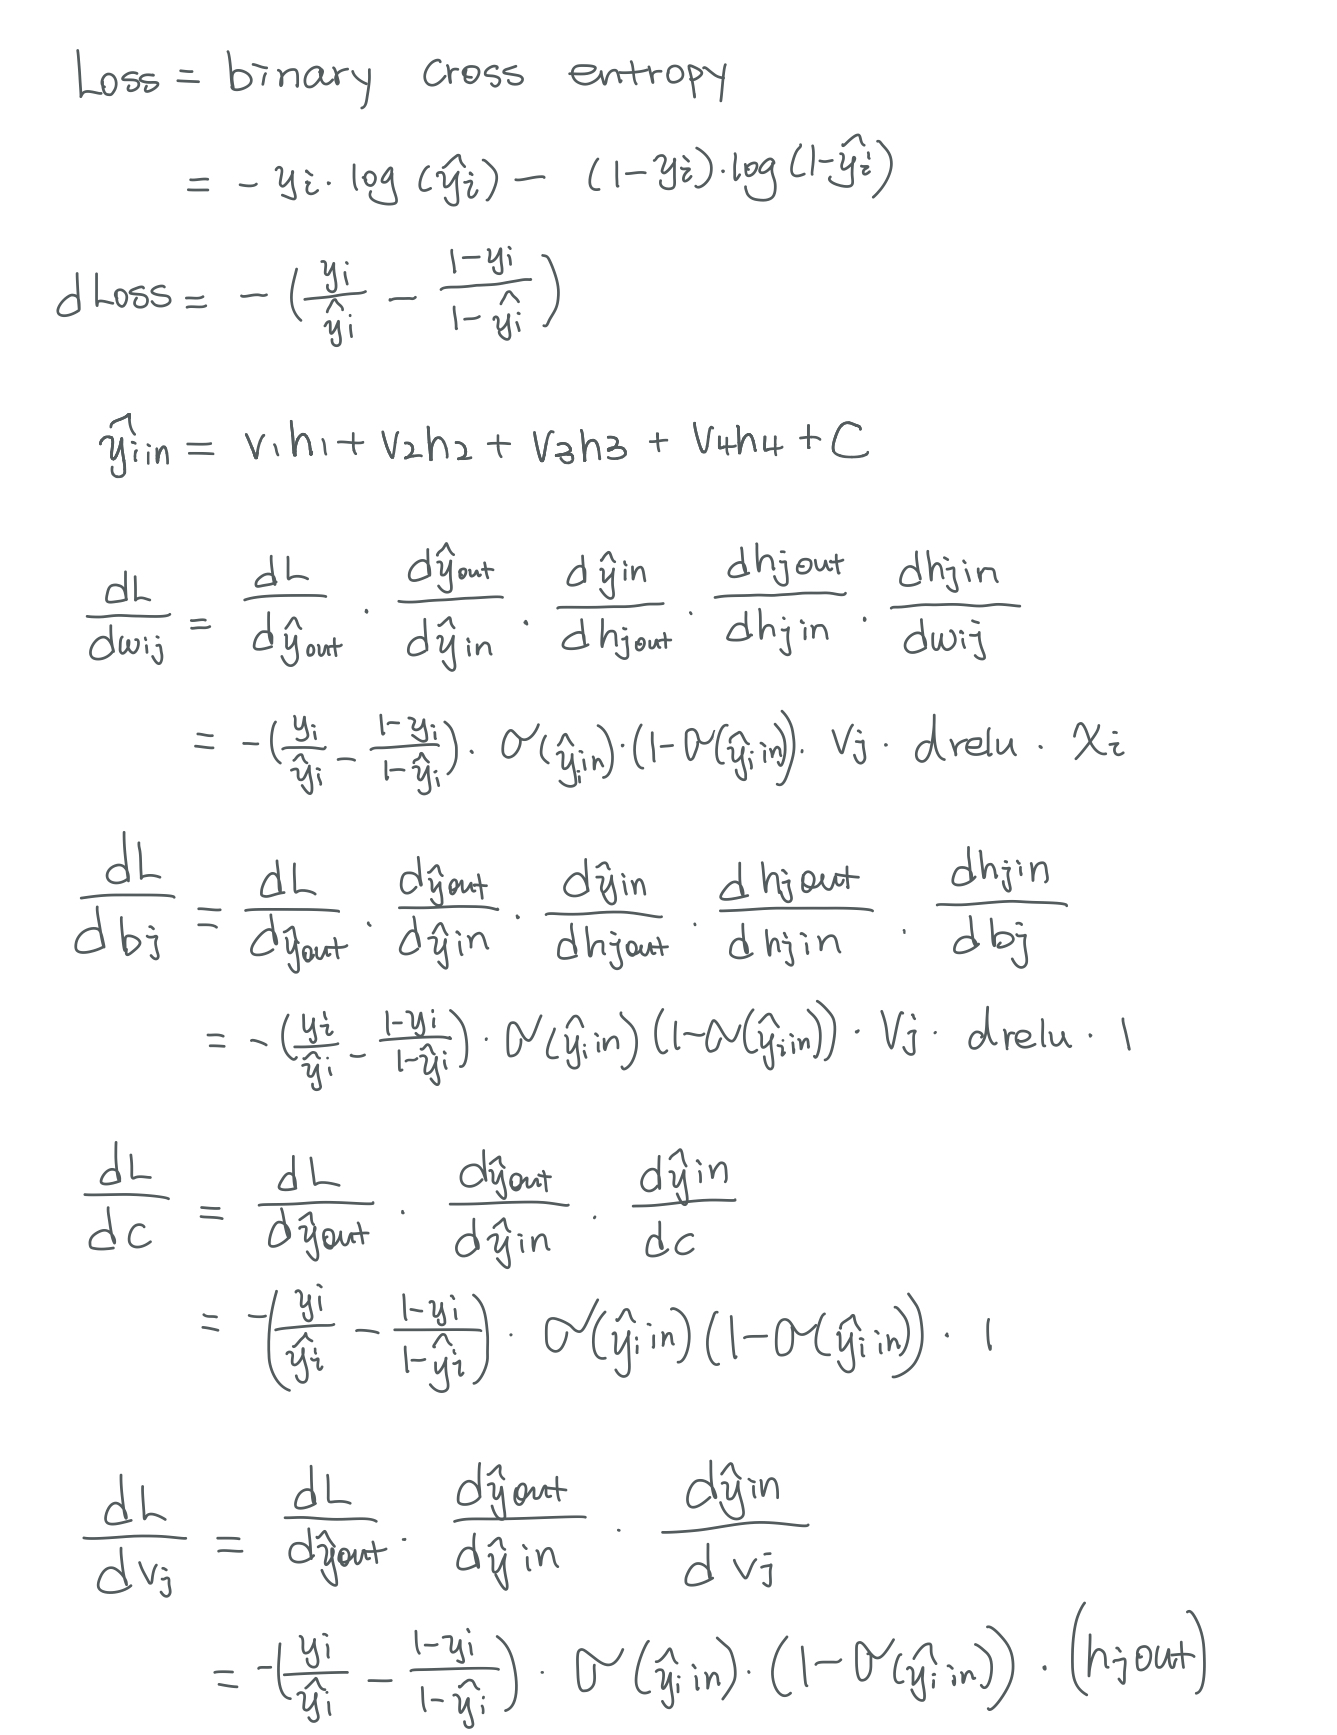 Loss = binary cross entropy
= - yi · log (ŷi) - (1-yi) · log (1-ŷi)
dLoss = - (yi/ŷi - (1-yi)/(1-ŷi))
ŷi in = v₁h₁ + v₂h₂ + v₃h₃ + v₄h₄ + C
dL/dwij = dL/dŷout · dŷout/dŷin · dŷin/dhjout · dhjout/dhjin · dhjin/dwij
= -(yi/ŷi - (1-yi)/(1-ŷi)) · σ(ŷi in) · (1-σ(ŷi in)) · Vj · drelu · Xi
dL/dbj = dL/dŷout · dŷout/dŷin · dŷin/dhjout · dhjout/dhjin · dhjin/dbj
= -(yi/ŷi - (1-yi)/(1-ŷi)) · σ(ŷi in) (1-σ(ŷi in)) · Vj · drelu · 1
dL/dc = dL/dŷout · dŷout/dŷin · dŷin/dc
= -(yi/ŷi - (1-yi)/(1-ŷi)) · σ(ŷi in) (1-σ(ŷi in)) · 1
dL/dvj = dL/dŷout · dŷout/dŷin · dŷin/dvj
= -(yi/ŷi - (1-yi)/(1-ŷi)) · σ(ŷi in) · (1-σ(ŷi in)) · (hjout)